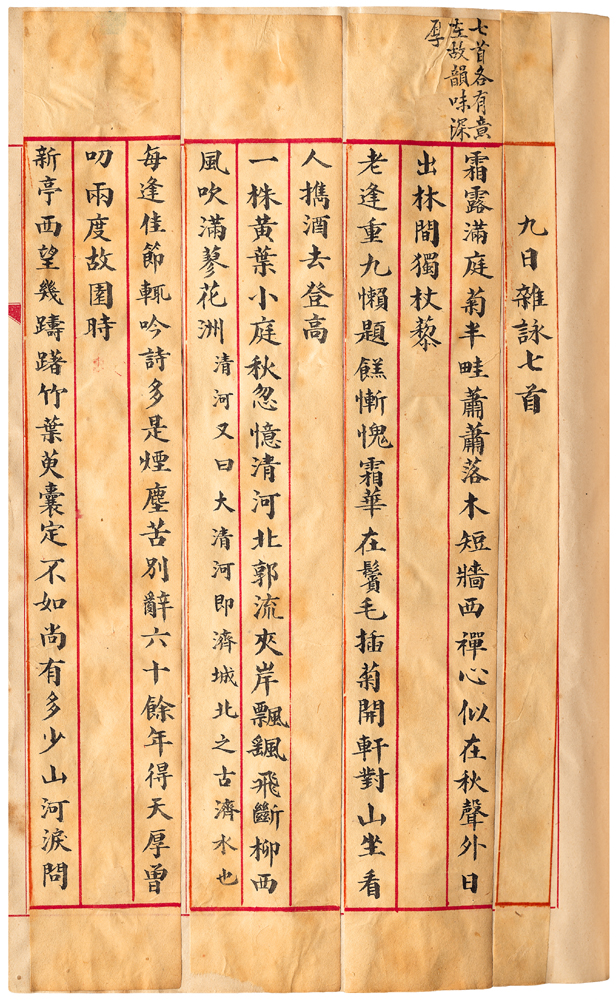 七首各有意
在故韻味深
厚
九日雜詠七首
霜露滿庭菊半畦蕭蕭落木短牆西禪心似在秋聲外日
出林間獨杖藜
老逢重九懶題餻慚愧霜華在鬢毛插菊開軒對山坐看
人攜酒去登高
一株黃葉小庭秋忽憶清河北郭流夾岸飄颻飛斷柳西
風吹滿蓼花洲清河又曰大清河即濟城北之古濟水也
每逢佳節輒吟詩多是煙塵苦別辭六十餘年得天厚曾
叨兩度故園時
新亭西望幾躊躇竹葉萸囊定不如尚有多少山河淚問